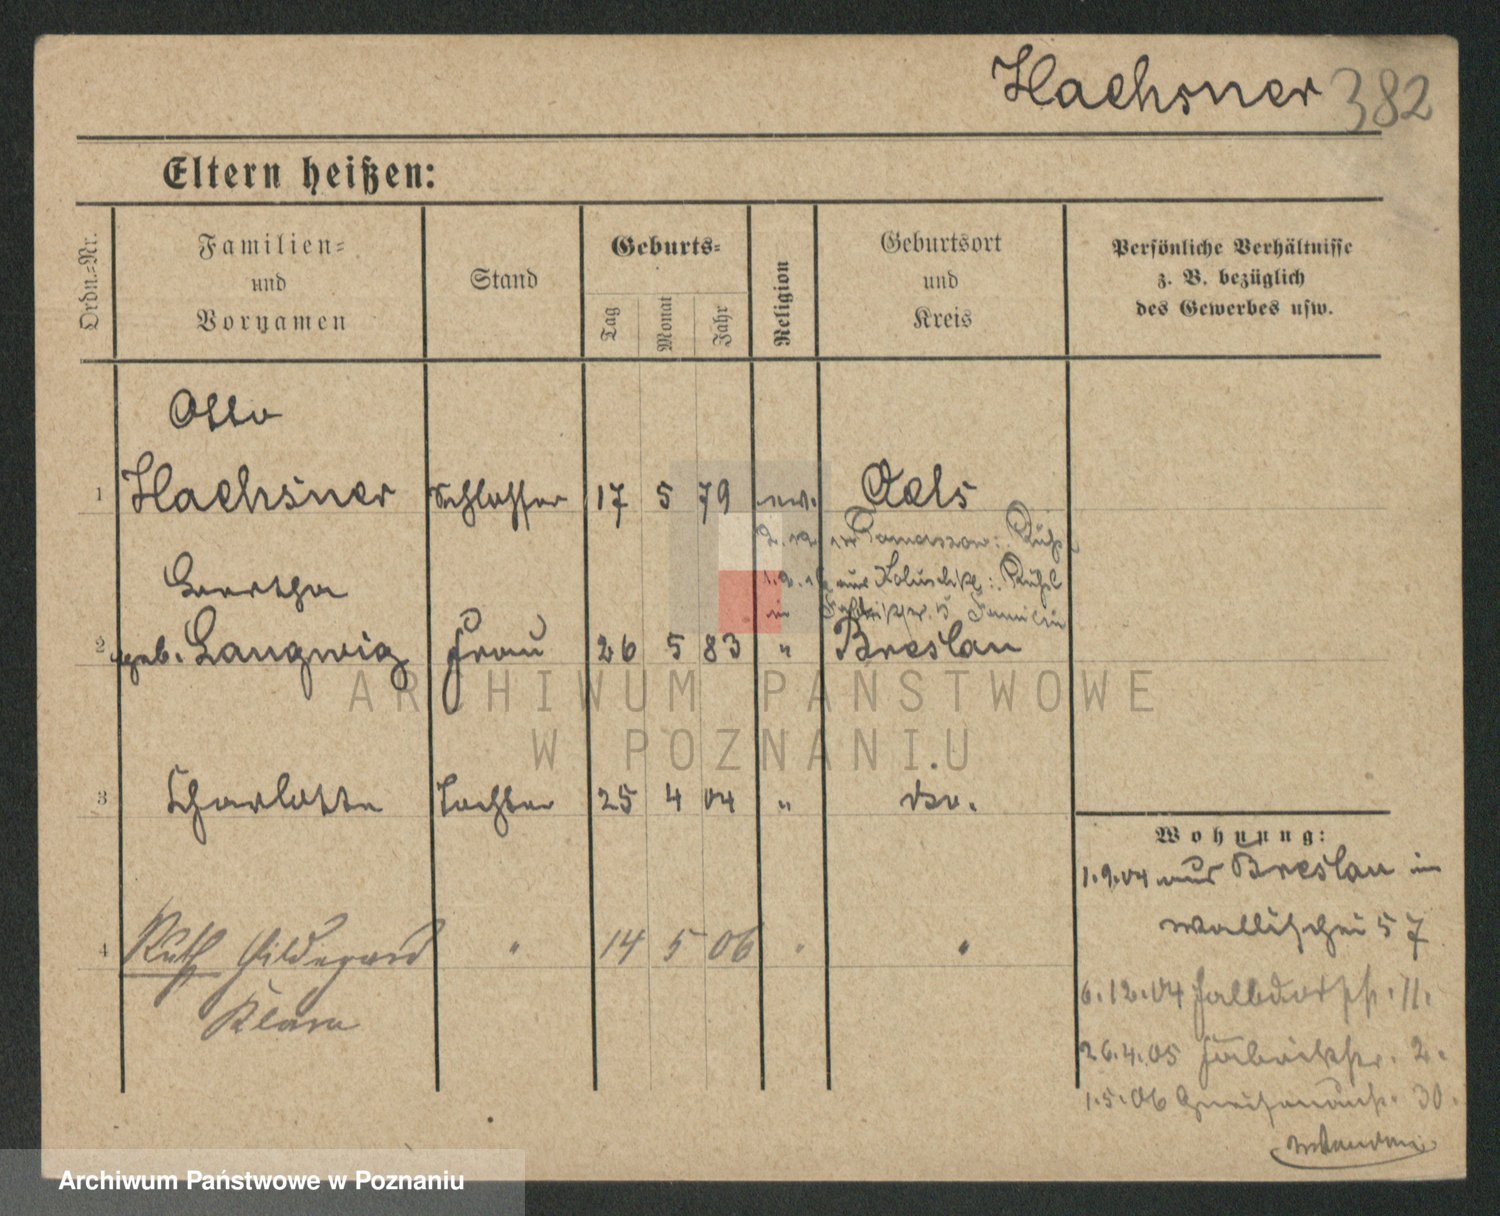 Hachsner 382
Eltern heißen:
Ordn.-Nr.
Familien-
und
Vornamen
Stand
Geburts-
Tag
Monat
Jahr
Religion
Geburtsort
und
Kreis
Persönliche Verhältnisse
z. B. bezüglich
des Gewerbes usw.
Otto
1 Hachsner Schlosser 17 5 79 ev. Oels
Bertha
2 geb. Langwig Frau 26 5 83 " Breslau
3 Charlotte Tochter 25 4 04 " do.
4 Ruth Hildegard " 14 5 06 " "
Klara
Wohnung:
1.9.04 aus Breslau in
Wallischei 57
6.12.04 Halbdorfstr. 11.
26.4.05 Fabrikstr. 2.
1.5.06 Gneisenaustr. 30.
ARCHIWUM PAŃSTWOWE
W POZNANIU
Archiwum Państwowe w Poznaniu